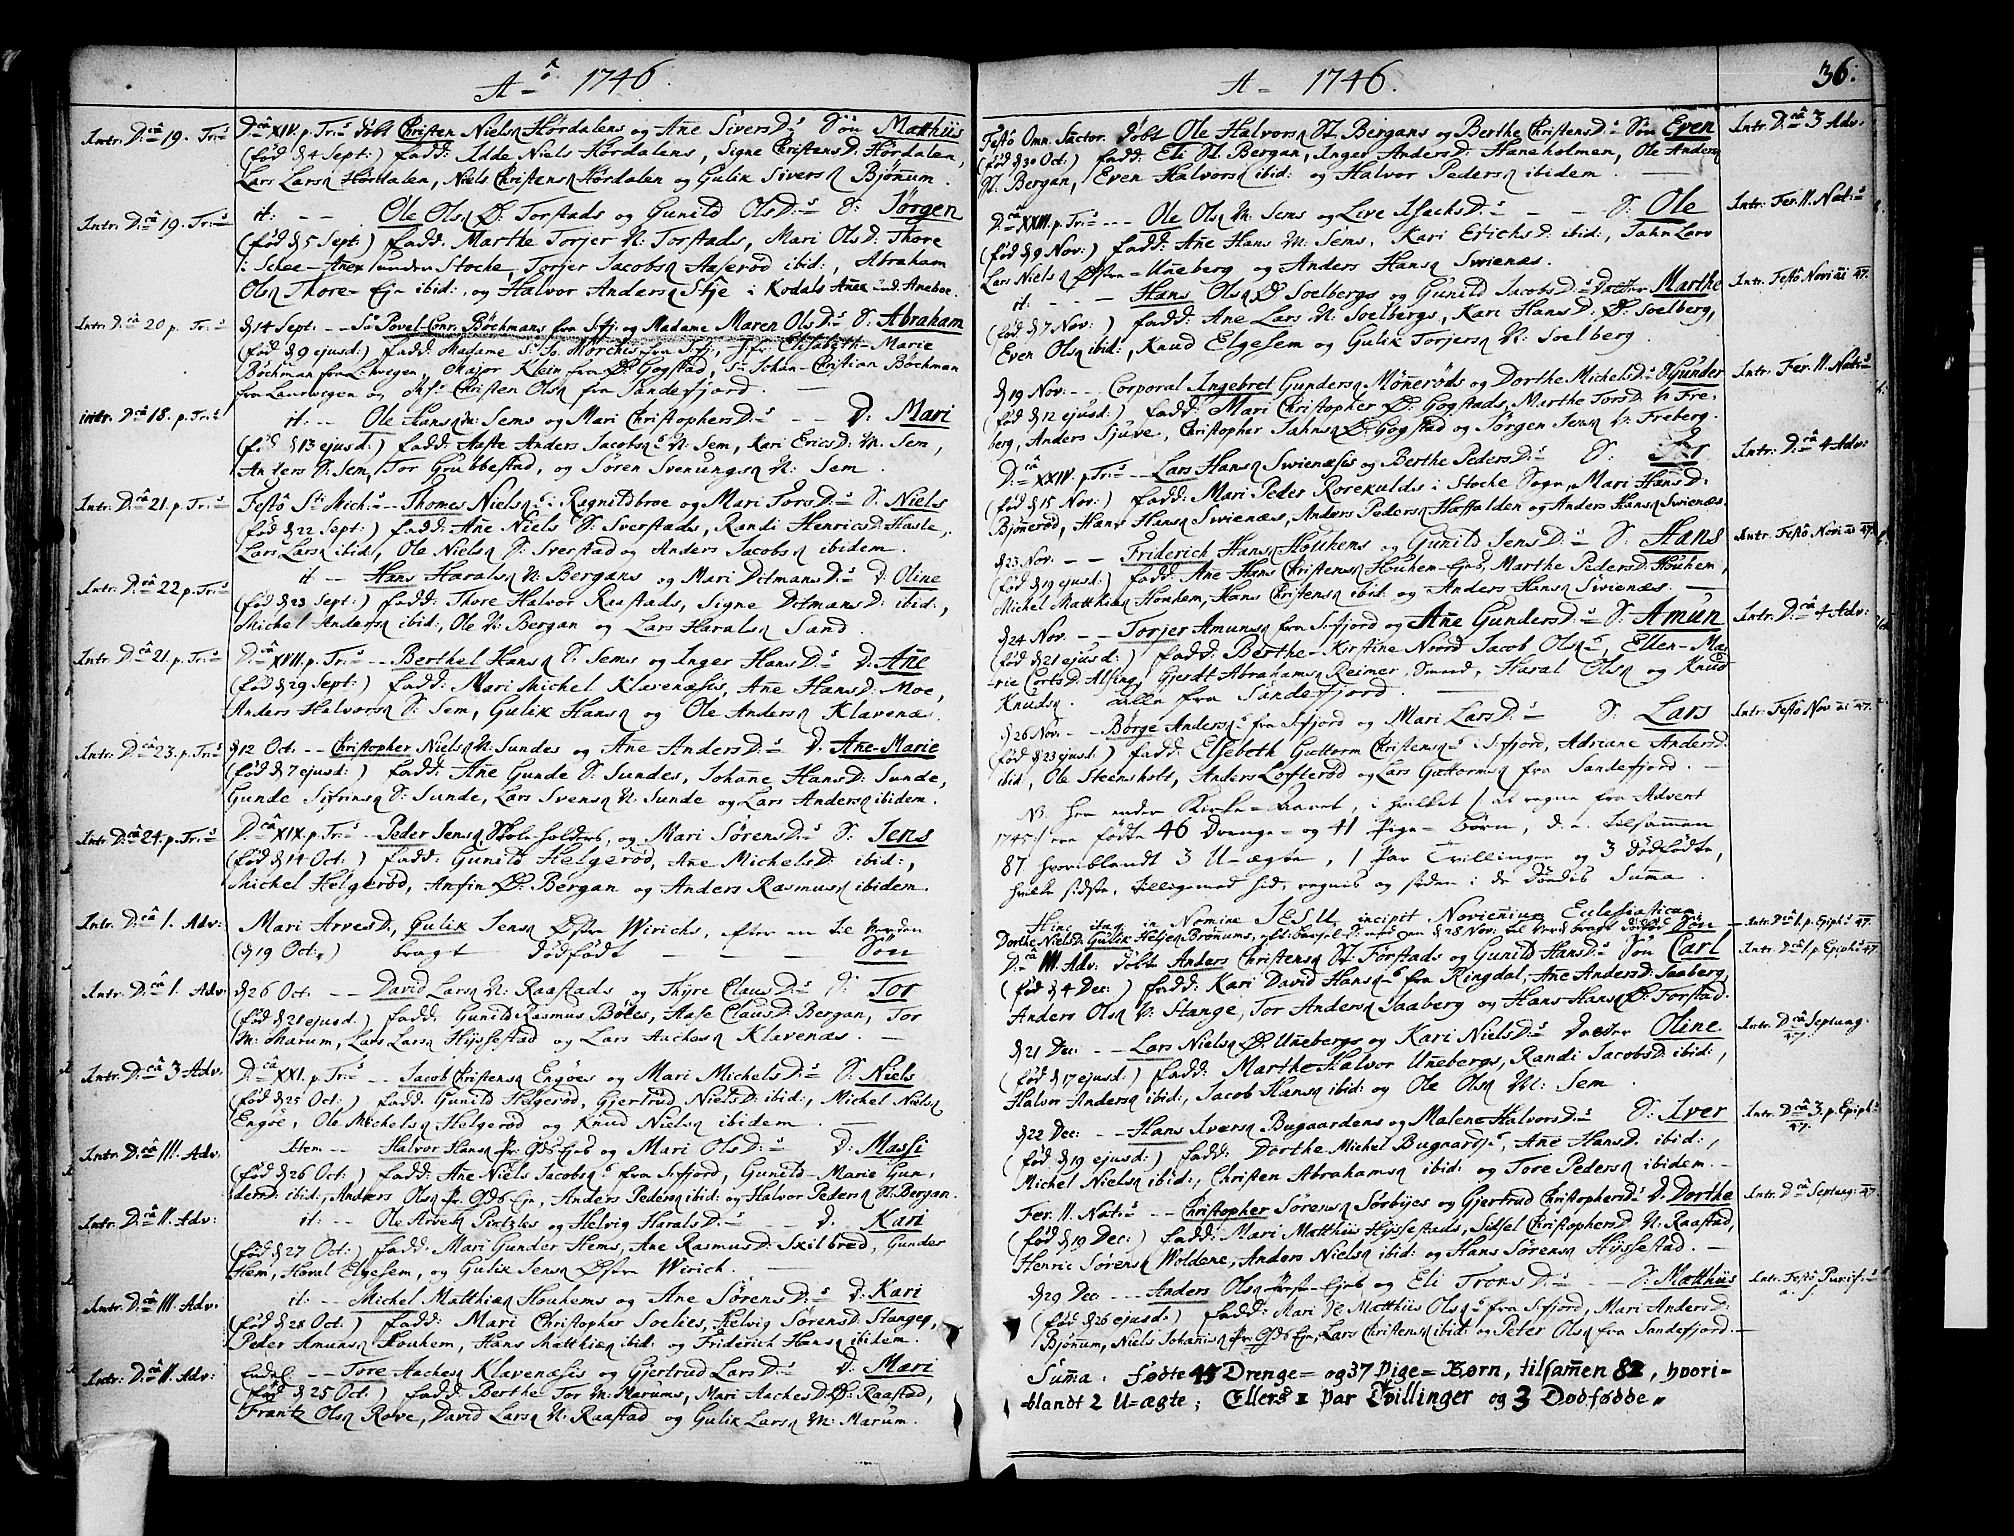 Aº 1746.
Intr. D.câ 19. Tr:s
D.câ XIV. p. Tr:s døbt Christen Nielsn Hørdalens og Ane Sivers D:s Søn Matthiis
(fød d. 4 Sept:) fadd: Idde Niels Hørdalens, Signe Christens D: Hørdalen,
Lars Larsn Hørdalen, Niels Christensn Hørdalen og Gulik Siversn Bjønum.
Intr. D.câ 19. Tr:s
it: -- Ole Olsn Ø: Torstads og Gunild Ols D:s S: Jørgen
(fød d. 5 Sept:) fadd: Marthe Torjer N: Torstads, Mari Ols D: Thore
i Schee-Anex under Stoche, Torjer Jacobsn Aaserød ibid:, Abraham
Olsn Thore-Eje ibid:, og Halvor Andersn Skje i Kodals Anex und. Aneboe.
Intr. D.câ 20 p. Tr:s
d. 14 Sept: -- Sr Povel-Conr. Böchmans fra Sfj: og Madame Maren Ols D:s S: Abraham
(fød d. 9 ejusd:) fadd: Madame S. Jo. Mörchis fra Sfj:, Jfr Elisabeth-Marie
Böchman fra Lhvigen, Major Klein fra Ø: Gogstad, Sr Johan-Christian Böchman
fra Laurvigen og Christen Olsn fra Sandefjord.
Intr. D.câ 18. p. Tr:s
it: -- Ole Hansn N: Sems og Mari Christophers D:s D: Mari
(fød d. 13 ejusd:) fadd: Aaste Anders Jacobsn N: Sem, Kari Erics D: N: Sem,
Anders S: Sem, Tor Grubbestad, og Søren Svenungsn N: Sem.
Intr. D.câ 21. p. Tr:s
Festô Sti Mich: -- Thomes Nielsn i Regnildbroe og Mari Tors D:s S: Niels
(fød d. 22 Sept:) fadd: Ane Niels S: Sverstads, Randi Henrics D: Hasle,
Lars Larsn ibid:, Ole Nielsn S: Sverstad og Anders Jacobsn ibidem.
Intr. D.câ 22 p. Tr:s
it -- Hans Haralsn N: Bergans og Mari Ditmans D:s D: Oline
(fød d. 23 Sept:) fadd: Thore Halvor Raastads, Signe Ditmans D: ibid:,
Michel Andersn ibid:, Ole N: Bergan og Lars Haralsn Sand.
Intr. D.câ 21. p. Tr:s
D.câ XVII. p. Tr:s -- Berthel Hansn S: Sems og Inger Hans D:s D: Ane
(fød d. 29 Sept:) fadd: Mari Michel Klavenæsis, Ane Hans D: Moe,
Anders Halvorsn S: Sem, Gulik Hansn og Ole Andersn Klavenæs.
Intr. D.câ 23. p. Tr:s
d. 12 Oct. -- Christopher Nielsn N: Sundes og Ane Anders D:s D: Ane-Marie
(fød d. 7 ejusd:) fadd: Ane Gunde S: Sundes, Johane Hans D: Sunde,
Gunde Sifrinsn S: Sunde, Lars Svensn N: Sunde og Lars Andersn ibidem.
Intr. D.câ 24. p. Tr:s
D.câ XIX. p. Tr:s -- Peder Jensn Skoleholders, og Mari Sørens D:s S: Jens
(fød d. 14 Oct:) fadd: Gunild Helgerød, Ane Michels D: ibid:,
Michel Helgerød, Anfin Ø: Bergan og Anders Rasmusn ibidem.
Intr. D.câ 1. Adv:
Mari Arves D:, Gulik Jensn Østre Wirichs, efter en til verden
(d. 19 Oct.) bragt dødfødt - - - Søn
Intr. D.câ 1. Adv:
d. 26 Oct. -- David Larsn N: Raastads og Thyre Claus D:s S: Tor
(fød d. 21 ejusd:) fadd: Gunild Rasmus Bøles, Aase Claus D: Bergan, Tor
N: Marum, Lars Larsn Hyssestad og Lars Aachesn Klavenæs.
Intr. D.câ 3 Adv.
D.câ XXI. p. Tr:s -- Jacob Christensn Engøes og Mari Michels D:s S: Niels
(fød d. 25 Oct:) fadd: Gunild Helgerød, Gjertrud Niels D: ibid:, Michel Nielsn
Engøe, Ole Michelsn Helgerød og Knud Nielsn ibidem.
Intr. D.câ III. Adv.
Item -- Halvor Hansn Pr. Gds Ejes og Mari Ols D:s D: Massi
(fød d. 26 Oct:) fadd: Ane Niels Jacobsn fra Sfjord, Gunild-Marie Gun-
ders D: ibid:, Anders Olsn Pr. Gds Eje, Anders Pedersn ibid: og Halvor Pedersn N: Bergan.
Intr: D.câ II. Adv:
it: -- Ole Arvesn Piatzles og Helvig Harals D:s D. Kari
(fød d. 27 Oct:) fadd: Mari Gunder Hems, Ane Rasmus D: Skilbred, Gunder
Hem, Haval Elgesem, og Gulik Jensn Østre Wirich.
Intr: D.câ III. Adv:
it: -- Michel Matthisn Houhems og Ane Sørens D:s D: Kari
(fød d. 28 Oct:) fadd: Mari Christopher Soelies, Helvig Sørens D: Stangep,
Peder Amunsn Houhem, Hans Matthisn ibid: og Friderich Hansn ibidem.
Intr: D.câ II. Adv:
Tore Aachesn Klavenæsis og Gjertrud Lars D:s D: Mari
(fød d. 25 Oct:) fadd: Berthe Tor N: Marums, Mari Aaches D: Ø: Raastad,
Frantz Olsn Rove, David Larsn N: Raastad og Gulik Larsn N: Marum.
Aº 1746.
36.
Festô Omn. Sanctor. døbt Ole Halvorsn N: Bergans og Berthe Christens D:s Søn Even
Intr. D.câ 3 Adv:
(fød d. 30 Oct:) fadd: Eli N: Bergan, Inger Anders D: Haneholmen, Ole Andersn
N: Bergan, Even Halvorsn ibid: og Halvor Pedersn ibidem.
D.câ XXIII. p. Tr:s -- Ole Olsn N: Sems og Live Isachs D:s - - S: Ole
Intr. Fer. II. Nat:s
(fød d. 9 Nov:) fadd: Ane Hans N: Sems, Kari Erichs D: ibid:, Jahn Larv
Lars Nielsn Østen-Uneberg og Anders Hansn Svienæs.
it. -- Hans Olsn Ø: Soelbergs og Gunild Jacobs D:s Datter Marthe
Intr. Festô Novi ai 47.
(fød d. 7 Nov:) fadd: Ane Lars N: Soelbergs, Kari Hans D: Ø: Soelberg,
Even Olsn ibid:, Knud Elgesem og Gulik Torjersn N: Soelberg.
d. 19 Nov. -- Corporal Ingebret Gundersn Mønerøds og Dorthe Michels D:s S Gunder
Intr. Fer. II. Nat:s
(fød d. 12 ejusd:) fadd: Mari Christopher Ø: Gogstads, Marthe Tors D: V: Fre-
berg, Anders Sjuve, Christopher Jahnsn Ø: Gogstad og Jørgen Jensn V: Freberg.
D.câ XXIV. p. Tr:s -- Lars Hansn Svienæsis og Berthe Peders D:s S: Per
Intr: D.câ 4 Adv:
(fød d. 15 Nov:) fadd: Mari Peder Rorekulds i Stoche Sogn, Mari Hans D:
Bjønerød, Hans Hansn Svienæs, Anders Pedersn Haffalden og Anders Hansn Svienæs.
d. 23 Nov. -- Friderich Hansn Houhems og Gunild Jens D:s S: Hans
Intr. Festô Novi ai 47.
(fød d. 19 ejusd:) fadd: Ane Hans Christensn Houhem-Ejes, Marthe Peders D: Houhem,
Michel Matthisn Houhem, Hans Christensn ibid: og Anders Hansn Svienæs.
d. 24 Nov. -- Torjer Amunsn fra Sfjord og Ane Gunders D:s S: Amun
Intr: D.câ 4 Adv:
(fød d. 21 ejusd:) fadd: Berthe-Kirstine Noord Jacob Olsn, Ellen-Ma-
rie Corts D: Alsing, Gjerdt Abrahamsn Reimer, Smed, Haral Olsn og Knud
Knudsn. alle fra Sandefjord.
d. 26 Nov. -- Børge Andersn fra Sfjord og Mari Lars D:s S: Lars
Intr. Festô Nov ai 47.
(fød d. 23 ejusd:) fadd: Elsebeth Guttorm Christensn i Sfjord, Adriane Anders D:
ibid, Ole Steensholt, Anders Lofterød og Lars Guttormsn fra Sandefjord.
NB. Her ender Kirke-Aaret, i hvilket /: at regne fra Advent
1745 :/ ere fødte 46 Drenge- og 41 Pige-Børn, d. e. tilsammen
87 hvoriblandt 3 U-ægte, 1 Par Tvillinger og 3 dødfødte,
hvilke sidste, tilligemed hid, regnis og siden i de Dødes Summa.
Hinc itaq in Nomine JESU incipit Noviennium Ecclesiasticum.
Dorthe Niels D: Gulik Heljesn Brønums, d. 28 Nov. til verd. bragt dødfød Søn
Intr. D.câ 1. p. Epiph:s 47
D.câ III. Adv: døbt Anders Christensn N: Torstads og Gunild Hans D:s Søn Carl
Intr. D.câ 1. p. Epiph:s 47
(fød d. 4 Dec:) fadd: Kari David Hansn fra Ringdal, Ane Anders D: Saaberg,
Anders Olsn V: Stange, Tor Andersn Saaberg og Hans Hansn Ø: Torstad.
d. 21 Dec: -- Lars Nielsn Ø: Unebergs og Kari Niels D:s Datter Oline
Intr. D.câ Septuag. 47.
(fød d. 17 ejusd:) fadd: Marthe Halvor Unebergs, Randi Jacobs D: ibid:,
Halvor Andersn ibid:, Jacob Hansn ibid: og Ole Olsn N: Sem.
d. 22 Dec: -- Hans Iversn Bugaardens og Malene Halvors D:s S: Iver
Intr. D.câ 3. p. Epiph:s 47.
(fød d. 19 ejusd:) fadd: Dorthe Michel Bugaards, Ane Hans D: ibid:,
Michel Nielsn ibid:, Christen Abrahamsn ibid: og Tore Pedersn ibidem.
Fer. II. Nat:s -- Christopher Sørensn Sørbyes og Gjertrud Christophers D:s D. Dorthe
Intr. D.câ Septuag: 47.
(fød d. 19 Dec:) fadd: Mari Matthiis Hyssestads, Sidsel Christophers D: N: Raastad,
Henric Sørensn Woldene, Anders Nielsn ibid: og Hans Sørensn Hyssestad.
d. 29 Dec -- Anders Olsn Ejes og Eli Trons D:s S: Matthiis
Intr. Festô Purif:s
(fød d. 26 ejusd:) fadd: Mari N: Matthiis Olsn fra Sfjord, Mari Anders D:
Bjønum, Niels Johanisn Pr. Gds Eje, Lars Christensn ibid: og Peter Olsn fra Sandefjord.
Summa: Fødte 45 Drenge- og 37 Pige-Børn, tilsamen 82, hvori-
blandt 2 U-ægte; Ellers 1 par Tvillinger og 3 Dødfødde.